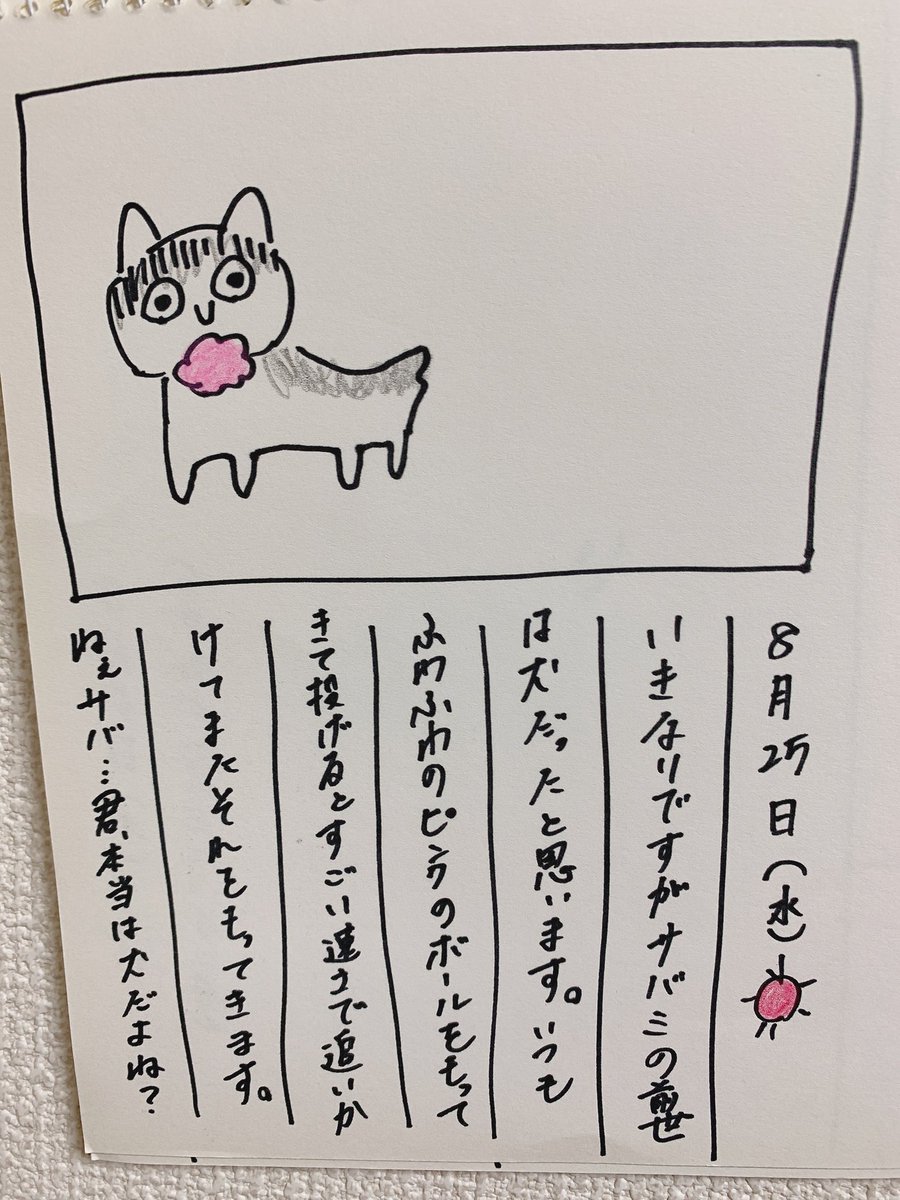 8月25日(水)
いきなりですがサバミの前世
は犬だったと思います。いつも
ふわふわのピンクのボールをもって
きて投げるとすごい速さで追いか
けてまたそれをもってきます。
ねぇサバ…君、本当は犬だよね?